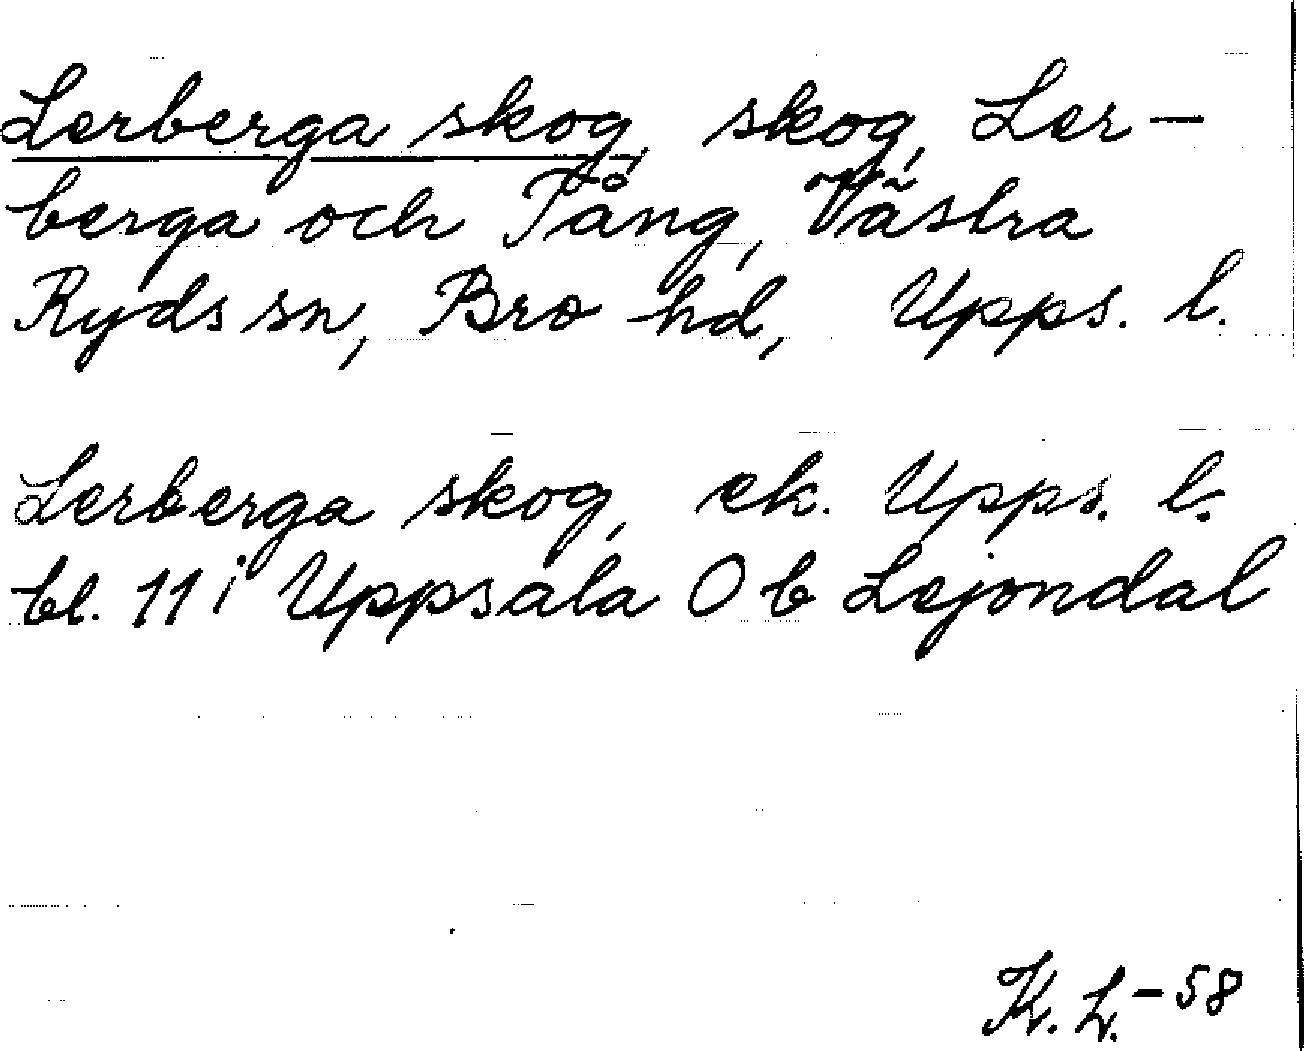 Lerberga skog, skog, Ler-
berga och Tång, Västra
Ryds sn, Bro hd, Upps. l.
Lerberga skog, ek. Upps. l.
bl. 11 i Uppsala O b Lejondal
K. L. -58